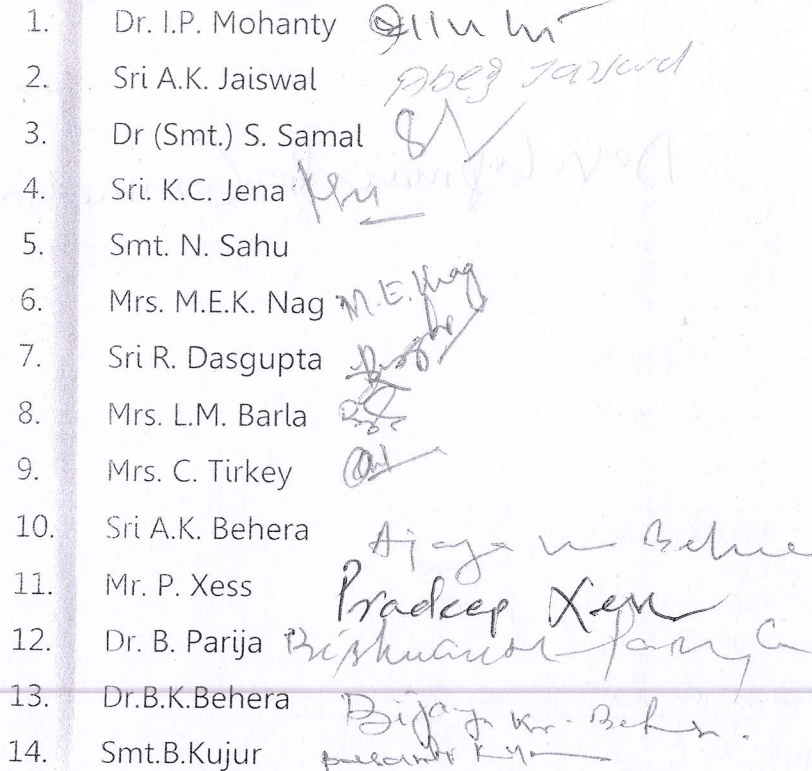 1. Dr. I.P. Mohanty
2. Sri A.K. Jaiswal Jaiswal
3. Dr (Smt.) S. Samal
4. Sri. K.C. Jena
5. Smt. N. Sahu
6. Mrs. M.E.K. Nag M.E.Knag
7. Sri R. Dasgupta
8. Mrs. L.M. Barla
9. Mrs. C. Tirkey
10. Sri A.K. Behera
11. Mr. P. Xess Pradeep Xess
12. Dr. B. Parija
13. Dr.B.K.Behera Bijay Kr. Behera.
14. Smt.B.Kujur